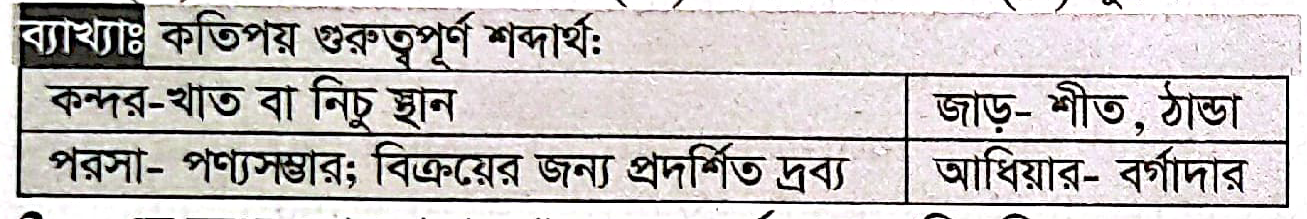 ব্যাখ্যাঃ কতিপয় গুরুত্বপূর্ণ শব্দার্থ:
কন্দর-খাত বা নিচু স্থান জাড়- শীত, ঠান্ডা
পরসা- পণ্যসম্ভার; বিক্রয়ের জন্য প্রদর্শিত দ্রব্য আধিয়ার- বর্গাদার